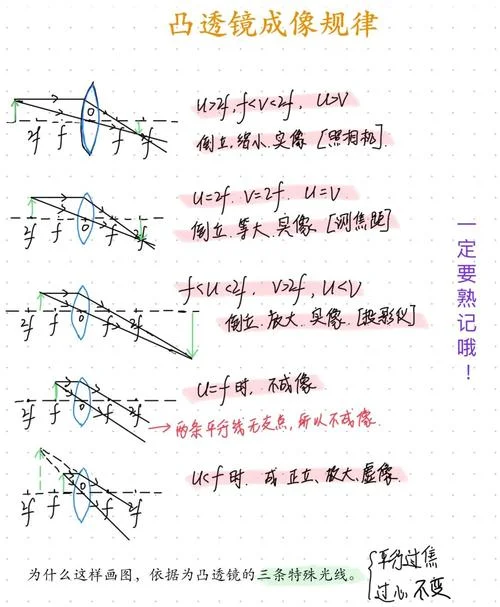 凸透镜成像规律
u>2f, f<v<2f, u>v
倒立, 缩小, 实像 [照相机].
2f f O f 2f
u=2f. v=2f. u=v
倒立. 等大. 实像. [测焦距]
2f f O f 2f
f<u<2f. v>2f, u<v
倒立. 放大. 实像. [投影仪]
2f f O f 2f
u=f时. 不成像
2f f O f 2f
→两条平行线无交点, 所以不成像.
u<f时. 成正立、放大、虚像.
2f f O f 2f
一定要熟记哦！
为什么这样画图，依据为凸透镜的三条特殊光线。
平行过焦
过心不变